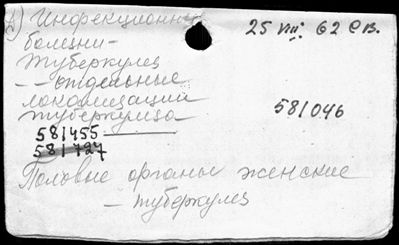 Инфекционные 25 VIII 62 св.
болезни-
Туберкулез
-- отдельные
локализации
туберкулеза- 581046
581455
581727
Половые органы женские
- туберкулез